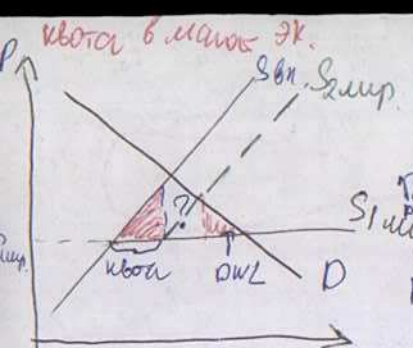 квота в малой эк.
P
Sвн.
S2 мир.
?
S1 м
Pмир.
квота
DWL
D